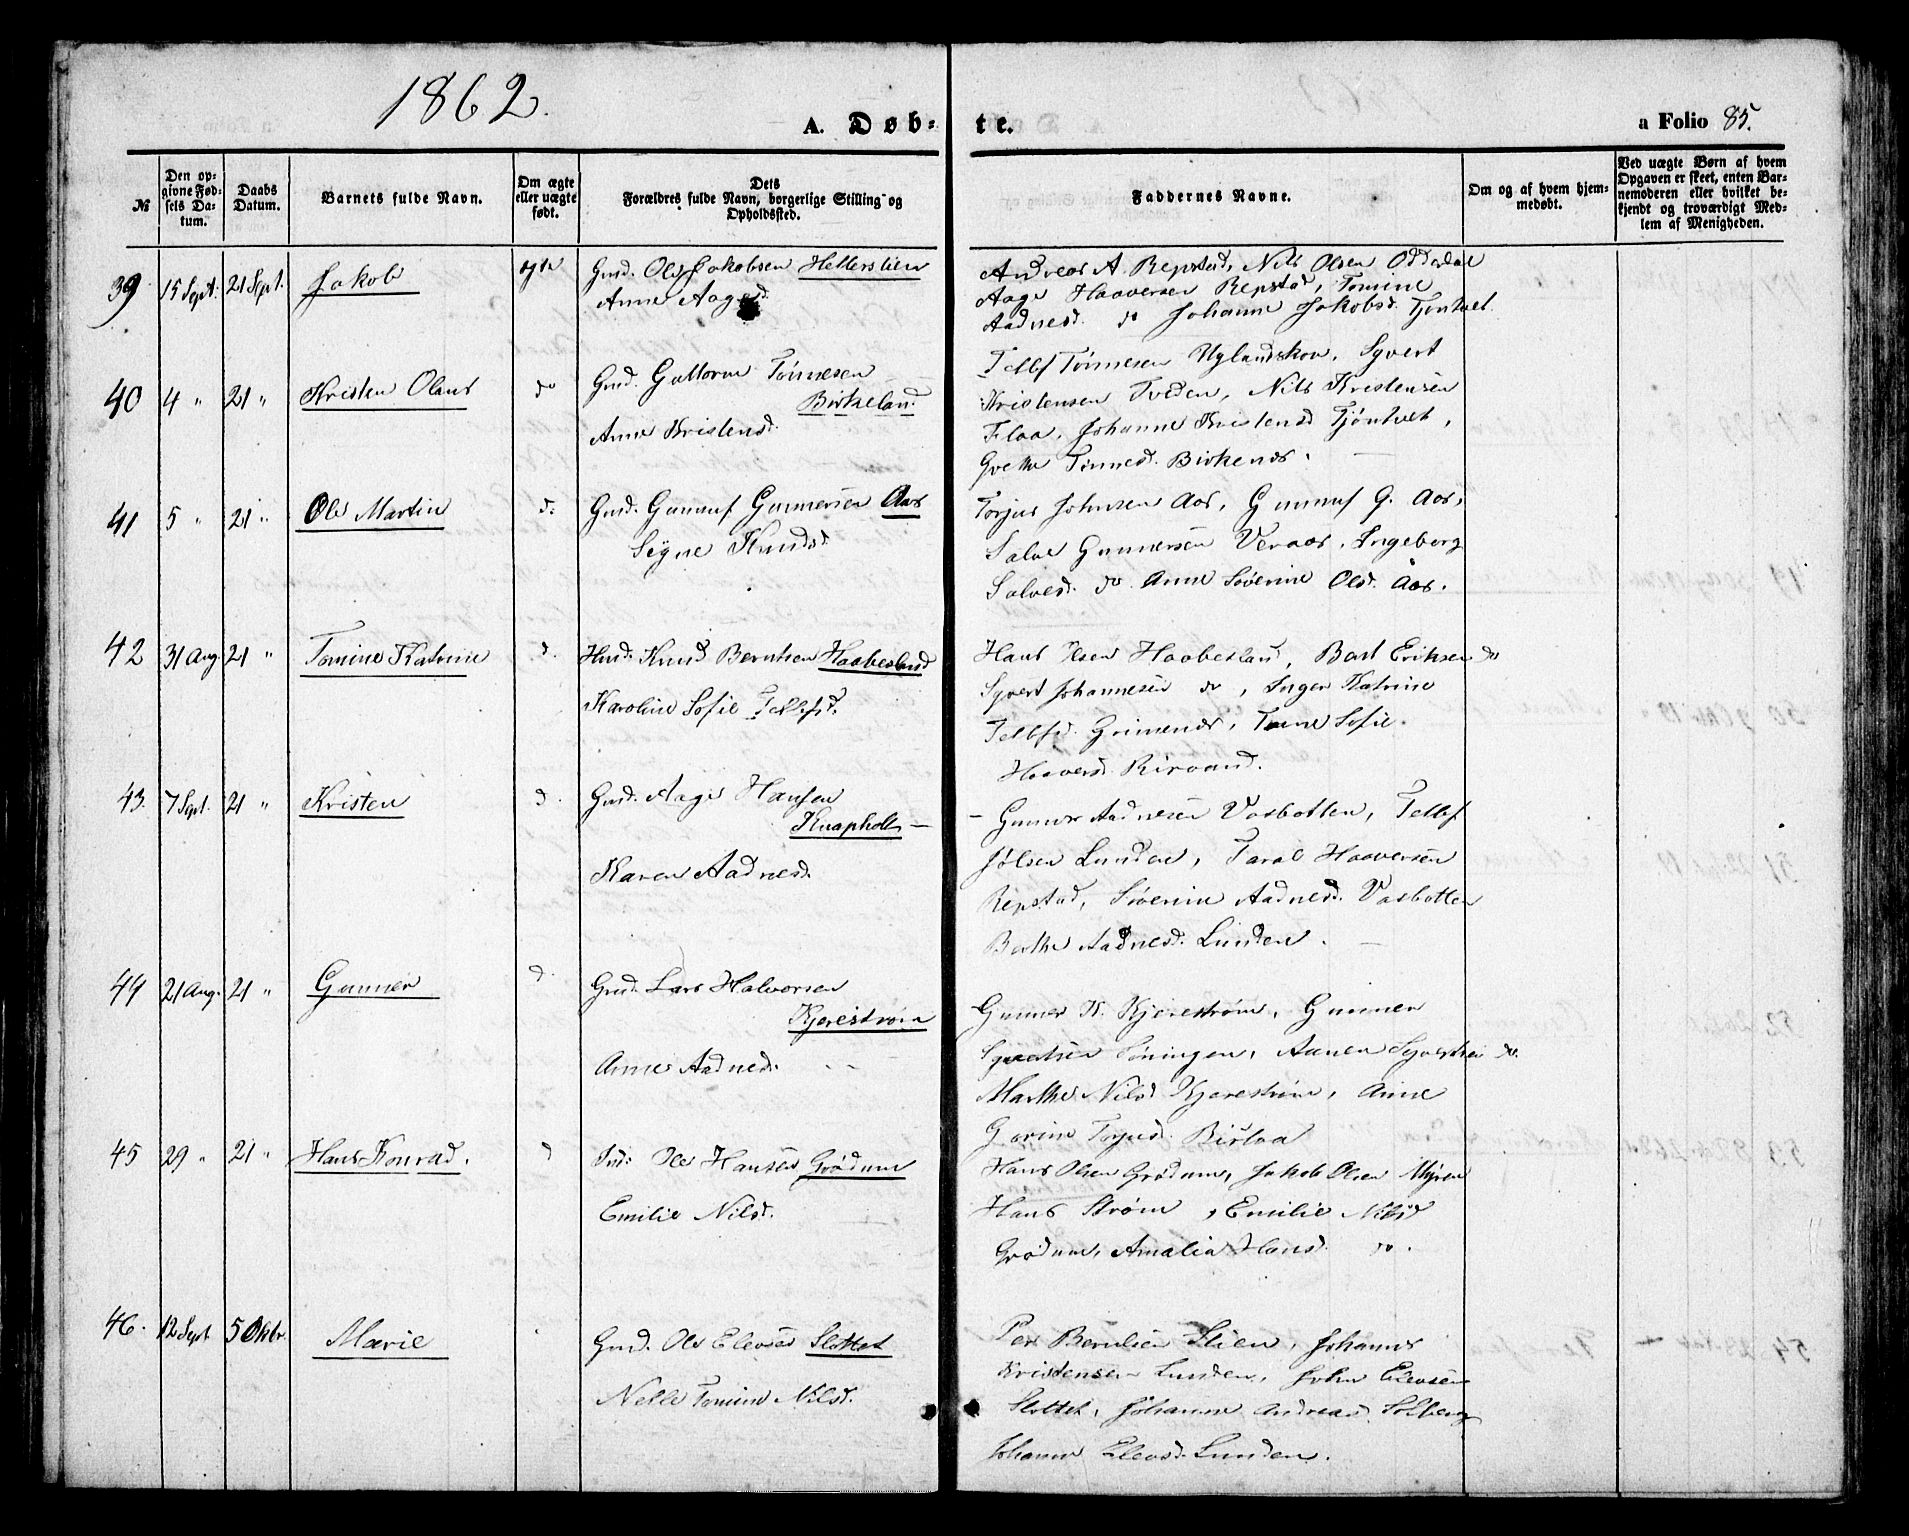 1862.
A. Døb- te. a Folio 85.
№
Den op-
givne Fød-
sels Da-
tum.
Daabs
Datum.
Barnets fulde Navn.
Om ægte
eller uægte
født.
Dets
Forældres fulde Navn, borgerlige Stilling og
Opholdssted.
Faddernes Navne.
Om og af hvem hjem-
medøbt.
Ved uægte Børn af hvem
Opgaven er skeet, enten Bar-
nemoderen eller hvilket be-
kjendt og troværdigt Med-
lem af Menigheden.
39 15 Sept. 21 Sept. Jakob Gmd. Ole Jakobsen Hellerslien
Anne Aagesd.
Andreas A. Repstad, Nils Olsen Oddedal
Aage Haaversen Repstad, Tomine
Aadnesd. do Johanne Jakobsd. Tjøntvet
40 4 " 21 " Kristen Olaus do Gmd. Guttorm Tønnesen
Birkeland
Anne Kristensd.
Tellef Tønnesen Uglandskov, Syvert
Kristensen Tveden, Nils Kristensen
Flaa, Johanne Kristensd Tjøntvet,
Tønnesd. Birkenes.
41 5 " 21 " Ole Martin do Gmd. Gunnuf Gunnersen Aas
Signe Knudsd
Torjus Johnsen Aas, Gunnuf G. Aas,
Salve Gunnersen Veraas, Ingeborg
Salvesd. do. Anne Severine Olsd. Aas.
42 31 Aug. 21 " Tomine Katrine d. Hmd. Knud Berntsen Haabesland
Karoline Sofie Tellefsd.
Hans Olsen Haabesland, Bent Eriksen do
Syvert Johannesen do, Inger Katrine
Tellefsd. Grimenes, Tone Sofie
Haaversd. Risvand.
43. 7 Sept. 21 " Kristen d. Gmd. Aage Hansen
Knapholt
Karen Aadnesd.
Gunner Aadnesen Vasbotten, Tellef
Jølsen Lunden, Taral Haaversen
Repstad, Severine Aadnesd. Vasbotten
Berthe Aadnesd. Lunden.
44 21 Aug. 21 " Gunner d. Gmd. Lars Halvorsen
Kjerestrøm
Anne Aadnesd.
Gunner K. Kjerestrøm, Gunner
Syvertsen Søningen, Aanen Syvertsen do.
Marthe Nilsd Kjerestrøm, Anne
Gorine Torjusd. Birlaa
45 29 " 21 " Hans Konrad. d Ind: Ole Hansen Grødum
Emilie Nilsd.
Hans Olsen Grødum, Jakob Olsen Myren
Hans Strøm, Emilie Nilsd
Grødum, Amalia Hansd. do.
46. 12 Sept 5 Oktbr. Marie Gmd. Ole Elevsen Slottet
Nelle Tomine Nilsd.
Per Berntsen Stien, Johannes
Kristensen Lunden, John Elevsen
Slottet, Johanne Andreasd. Solberg
Johanne Elevsd. Lunden.